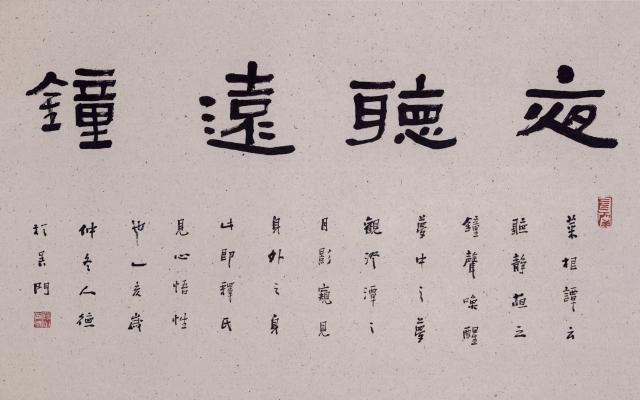 夜聽遠鐘
菜根譚云
聽靜亱之
鐘聲喚醒
夢中之夢
觀澄潭之
月影窺見
身外之身
此即釋氏
見心悟性
也乙亥歲
仲冬人德
於吳門